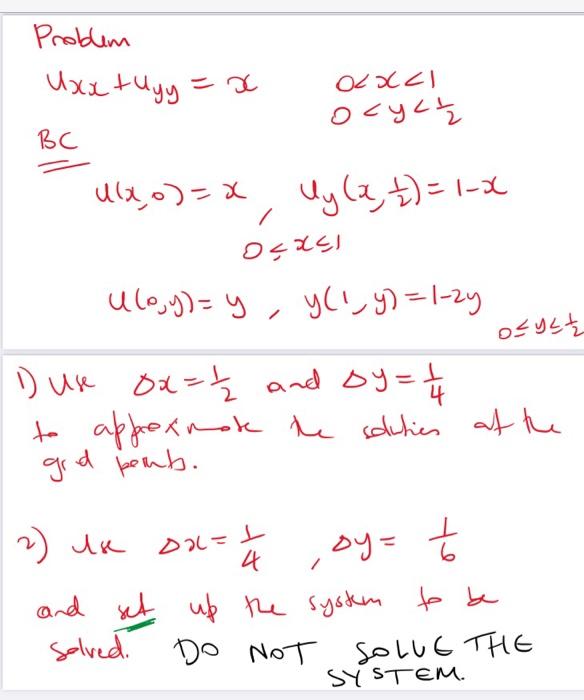 Problem
Uxx + Uyy = x 0<x<1
0<y<1/2
BC
U(x,0) = x , Uy(x,1/2) = 1-x
0≤x≤1
U(0,y) = y , y(1,y) = 1-2y
0≤y≤1/2
1) Use Δx = 1/2 and Δy = 1/4
to approximate the solution at the
grid points.
2) Use Δx = 1/4 , Δy = 1/6
and set up the system to be
solved. DO NOT SOLVE THE
SYSTEM.